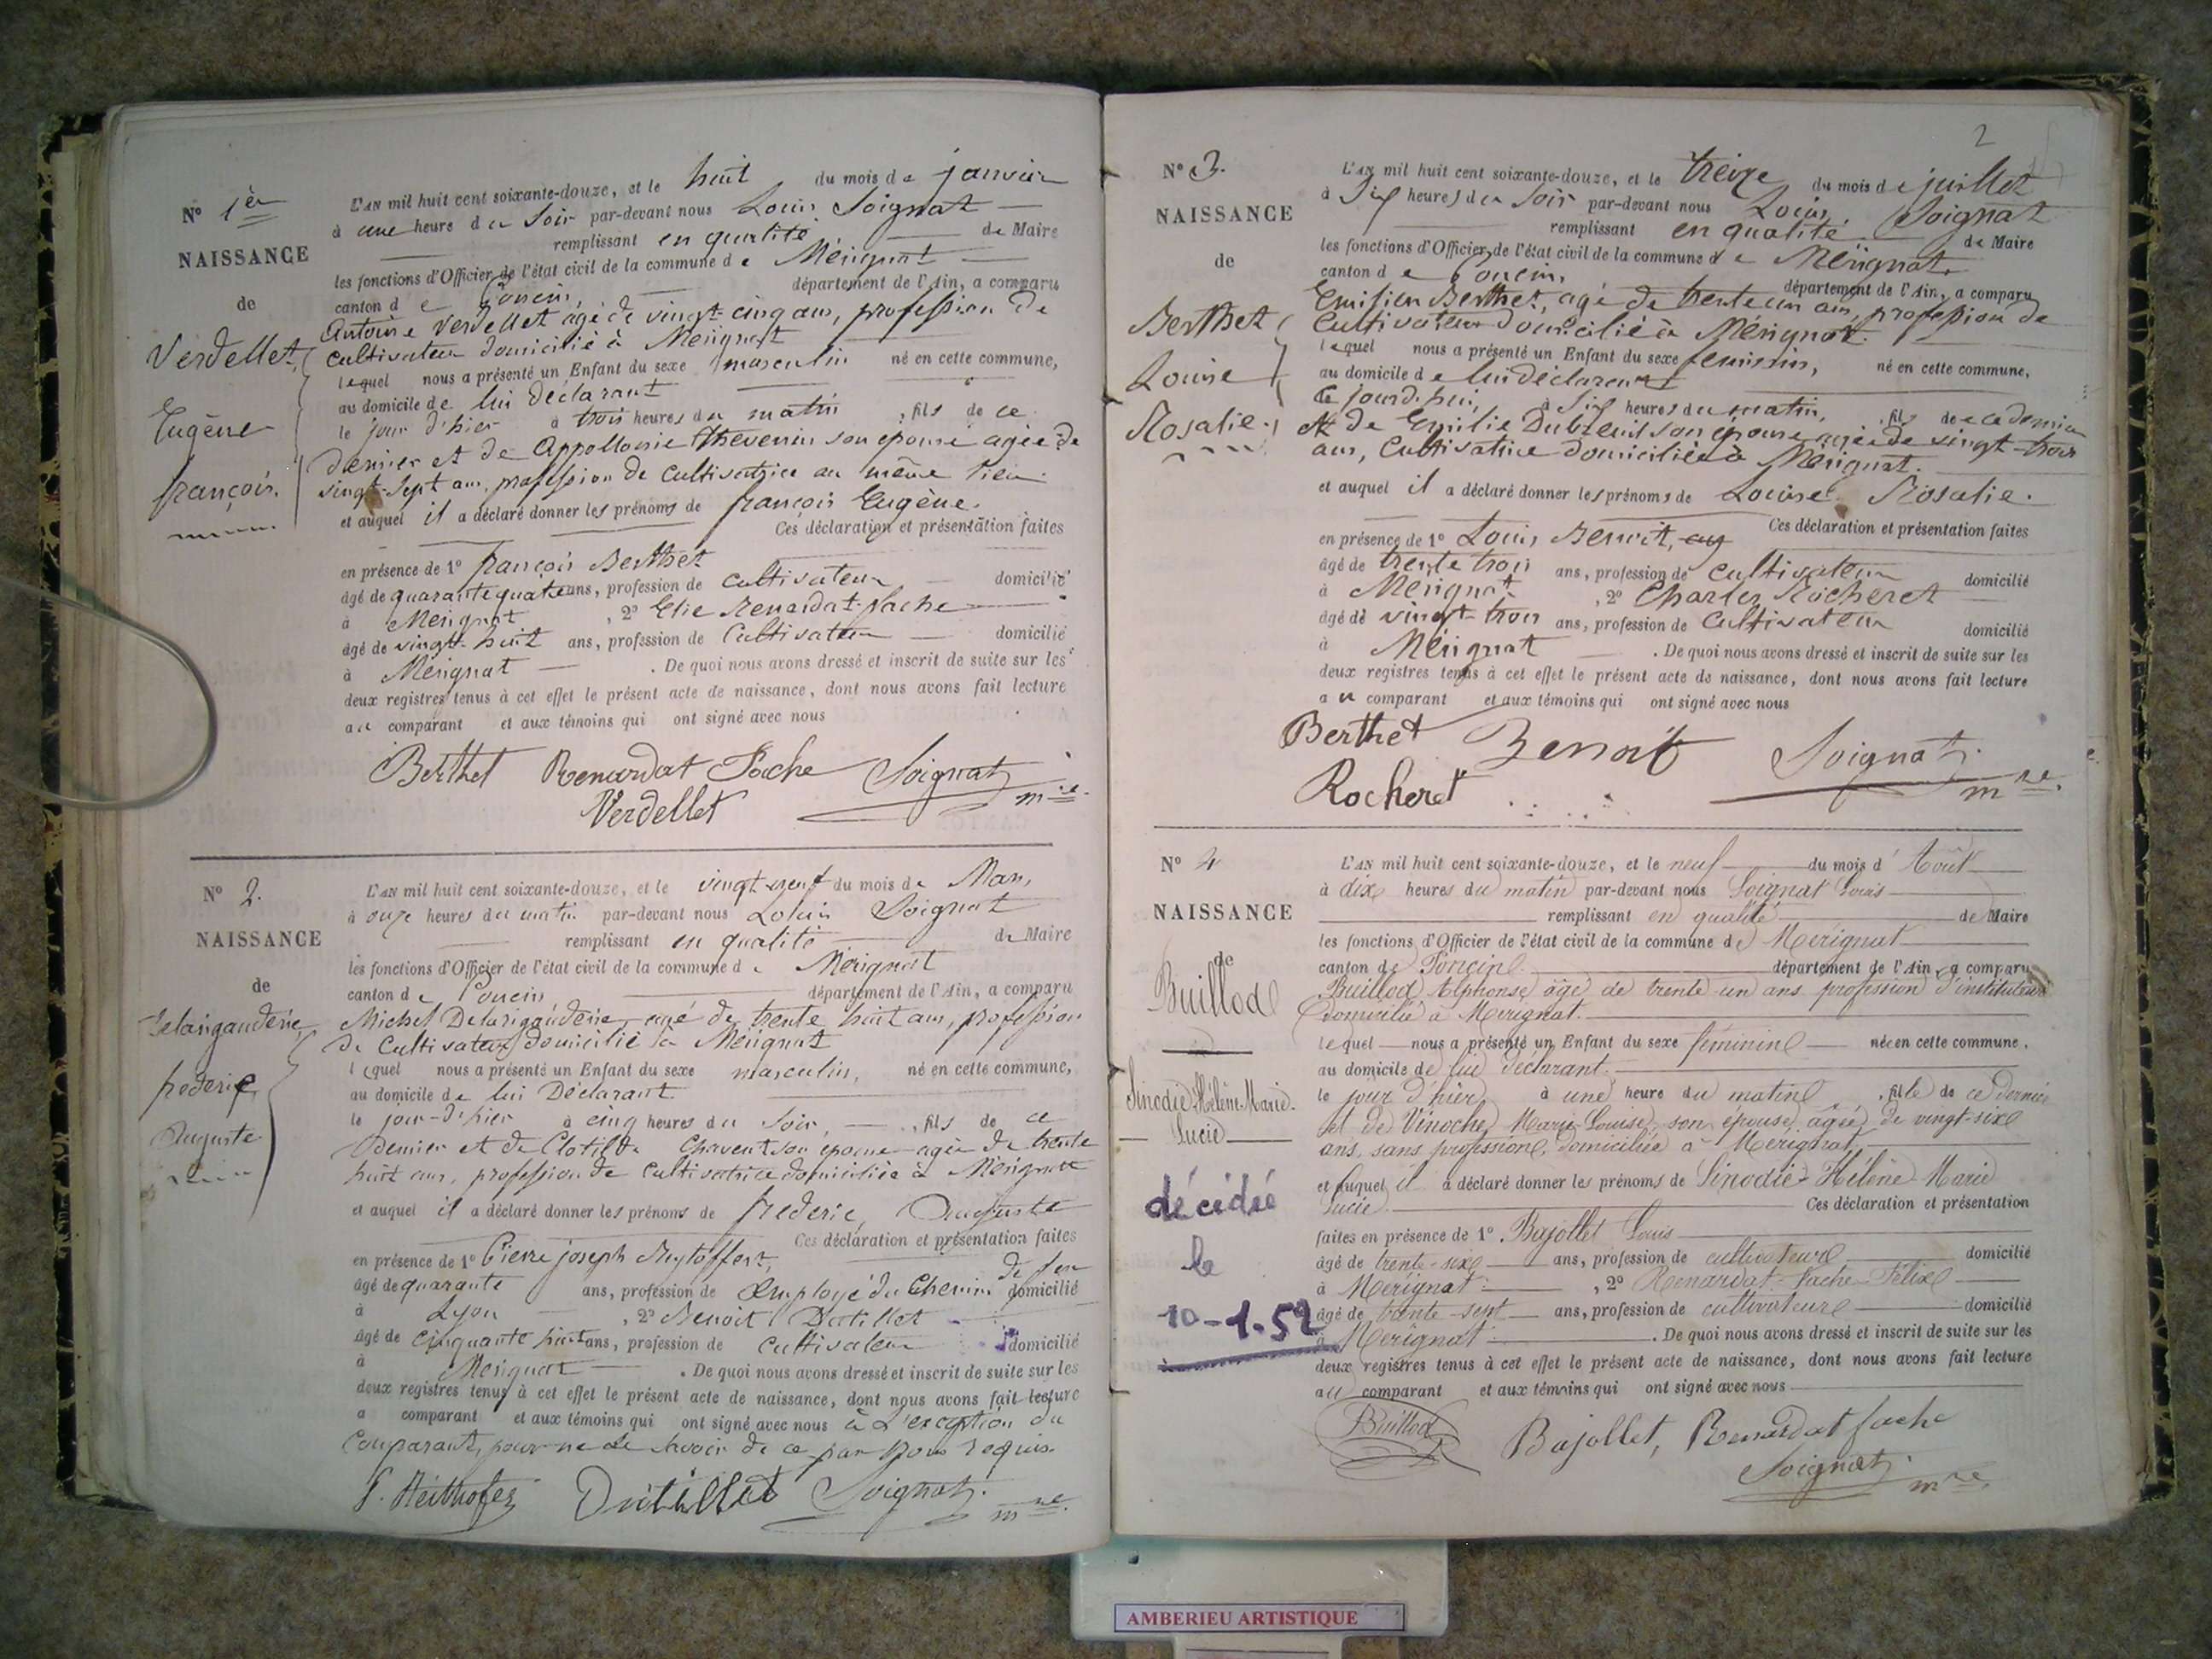 N° 1er
NAISSANCE
de
Verdellet
Eugène
françois.
L'AN mil huit cent soixante-douze, et le huit du mois de janvier
à une heure du Soir par-devant nous Louis Soignat
remplissant en qualité de Maire
les fonctions d'Officier de l'état civil de la commune de Mérignat
canton de Poncin, département de l'Ain, a comparu
Antoine Verdellet agé de vingt-cinq ans, profession de
cultivateur domicilié à Mérignat
lequel nous a présenté un Enfant du sexe masculin né en cette commune,
au domicile de lui déclarant
le jour d'hier à trois heures du matin, fils de ce
dernier et de Appollonie Thevenin son épouse agée de
vingt-sept ans, profession de cultivatrice au même lieu
et auquel il a déclaré donner les prénoms de françois Eugène.
Ces déclaration et présentation faites
en présence de 1° françois Berthet
âgé de quarante quatre ans, profession de cultivateur domicilié
à Mérignat, 2° Elie Renardat-fache
âgé de vingt-huit ans, profession de Cultivateur domicilié
à Mérignat. De quoi nous avons dressé et inscrit de suite sur les
deux registres tenus à cet effet le présent acte de naissance, dont nous avons fait lecture
au comparant et aux témoins qui ont signé avec nous
Berthet Renardat Fache Soignat
Verdellet mre
N° 2.
NAISSANCE
de
Delarigauderie
frédéric
Auguste
L'AN mil huit cent soixante-douze, et le vingt-neuf du mois de Mars
à onze heures du matin par-devant nous Louis Soignat
remplissant en qualité de Maire
les fonctions d'Officier de l'état civil de la commune de Mérignat
canton de Poncin département de l'Ain, a comparu
Michel Delarigauderie, agé de trente huit ans, profession
de Cultivateur domicilié à Mérignat
lequel nous a présenté un Enfant du sexe masculin, né en cette commune,
au domicile de lui Déclarant
le jour-d'hier à cinq heures du Soir, fils de ce
Dernier et de Clotilde Chavent son épouse agée de trente
huit ans, profession de cultivatrice domiciliée à Mérignat
et auquel il a déclaré donner les prénoms de frédéric Auguste
Ces déclaration et présentation faites
en présence de 1° Pierre joseph
âgé de quarante ans, profession de Employé du Chemin de fer domicilié
à Lyon, 2° Benoit Dutillet
âgé de cinquante huit ans, profession de Cultivateur domicilié
à Mérignat. De quoi nous avons dressé et inscrit de suite sur les
deux registres tenus à cet effet le présent acte de naissance, dont nous avons fait lecture
a comparant et aux témoins qui ont signé avec nous à l'exception du
Comparant, pour ne le savoir de ce par nous requis
Dutillet Soignat
mre
2
N° 3.
NAISSANCE
de
Berthet
Louise
Rosalie.
L'AN mil huit cent soixante-douze, et le treize du mois de juillet
à Six heures du Soir par-devant nous Louis Soignat
remplissant en qualité de Maire
les fonctions d'Officier de l'état civil de la commune de Mérignat
canton de Poncin, département de l'Ain, a comparu
Berthet, agé de trente un ans, profession de
Cultivateur domicilié à Mérignat.
lequel nous a présenté un Enfant du sexe feminin, né en cette commune,
au domicile de lui déclarant
ce jourd-hui, à Six heures du matin, fil de ce dernier
et de Emilie Dubreuil son épouse agée de vingt-trois
ans, Cultivatrice domiciliée à Mérignat.
et auquel il a déclaré donner les prénoms de Louise Rosalie.
Ces déclaration et présentation faites
en présence de 1° Louis Benoit,
âgé de trente trois ans, profession de cultivateur domicilié
à Mérignat, 2° Charles Rocheret
âgé de vingt-trois ans, profession de Cultivateur domicilié
à Mérignat. De quoi nous avons dressé et inscrit de suite sur les
deux registres tenus à cet effet le présent acte de naissance, dont nous avons fait lecture
au comparant et aux témoins qui ont signé avec nous
Berthet Benoit Soignat
Rocheret mre.
N° 4
NAISSANCE
de
Buillod
Sinodie-Hélène-Marie-
Lucie
décédée
le
10-1-52
L'AN mil huit cent soixante-douze, et le neuf du mois d'Août
à dix heures du matin par-devant nous Soignat Louis
remplissant en qualité de Maire
les fonctions d'Officier de l'état civil de la commune de Merignat
canton de Poncin département de l'Ain, a comparu
Buillod Alphonse âgé de trente-un ans profession d'instituteur
domicilié à Merignat.
lequel nous a présenté un Enfant du sexe féminin née en cette commune,
au domicile de lui déclarant.
le jour d'hier à une heure du matin, fille de ce dernier
et de Vinoche Marie-Louise, son épouse, âgée de vingt-six
ans, sans profession, domiciliée à Merignat,
et auquel il a déclaré donner les prénoms de Sinodie-Hélène-Marie
Lucie. Ces déclaration et présentation
faites en présence de 1° Bajollet Louis
âgé de trente-six ans, profession de cultivateur domicilié
à Merignat, 2° Renardat-Fache Félix
âgé de trente-sept ans, profession de cultivateur domicilié
à Merignat. De quoi nous avons dressé et inscrit de suite sur les
deux registres tenus à cet effet le présent acte de naissance, dont nous avons fait lecture
au comparant et aux témoins qui ont signé avec nous
Buillod Bajollet, Renardat fache
Soignat mre
AMBERIEU ARTISTIQUE